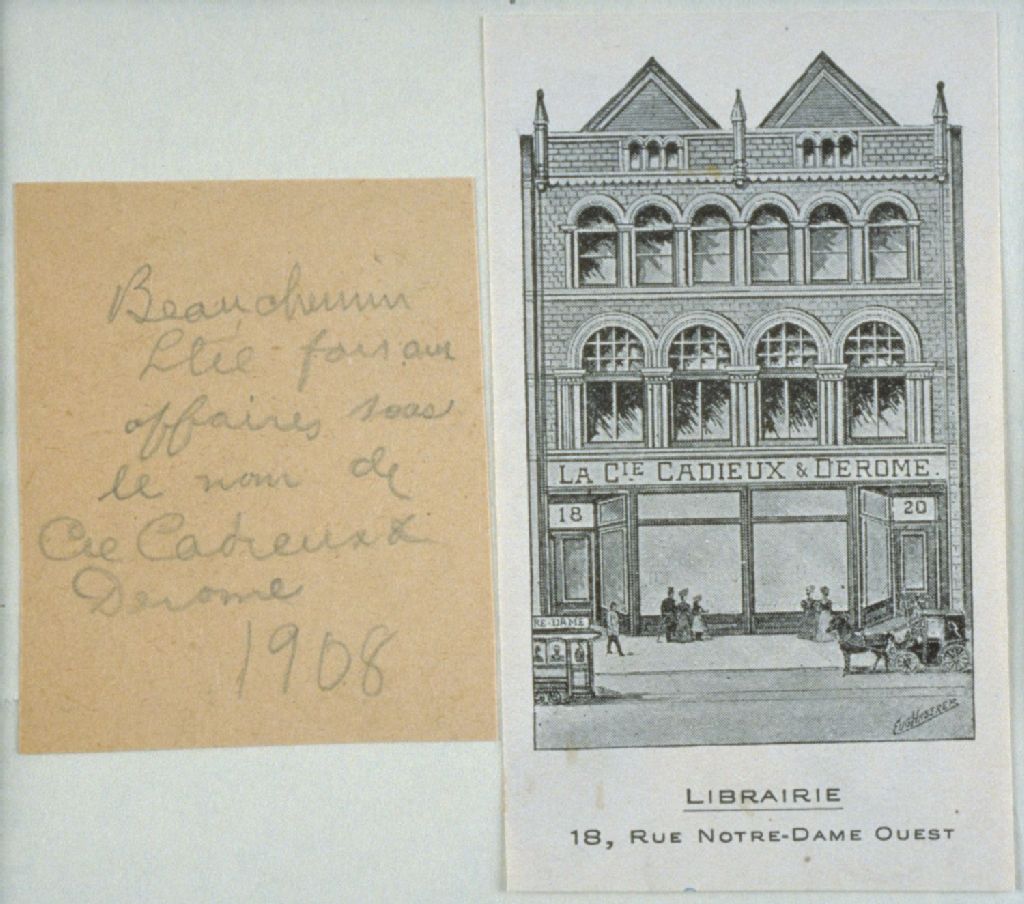 Beauchemin
Ltée fais aux
affaires sous
le nom de
Cie Cadieux &
Derome
1908
LA CIE CADIEUX & DEROME.
18
20
RE-DAME
EUG HASTREH
LIBRAIRIE
18, RUE NOTRE-DAME OUEST